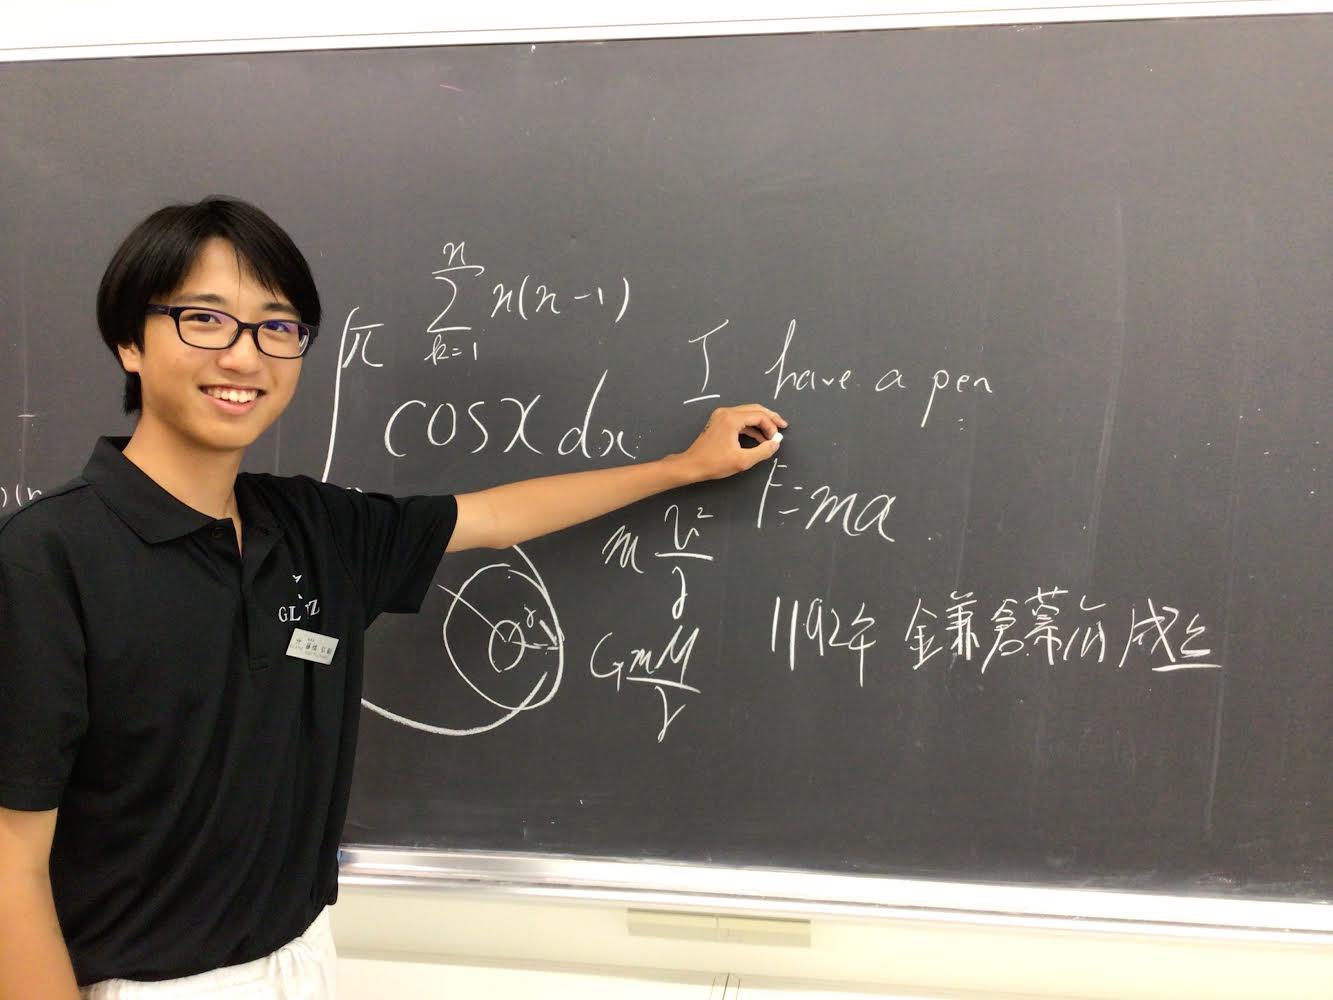 n
∑ n(n-1)
k=1
∫ π
cosx dx
I have a pen
F=ma
m v²/r
r
G mM/r
1192年 鎌倉幕府成立
GL